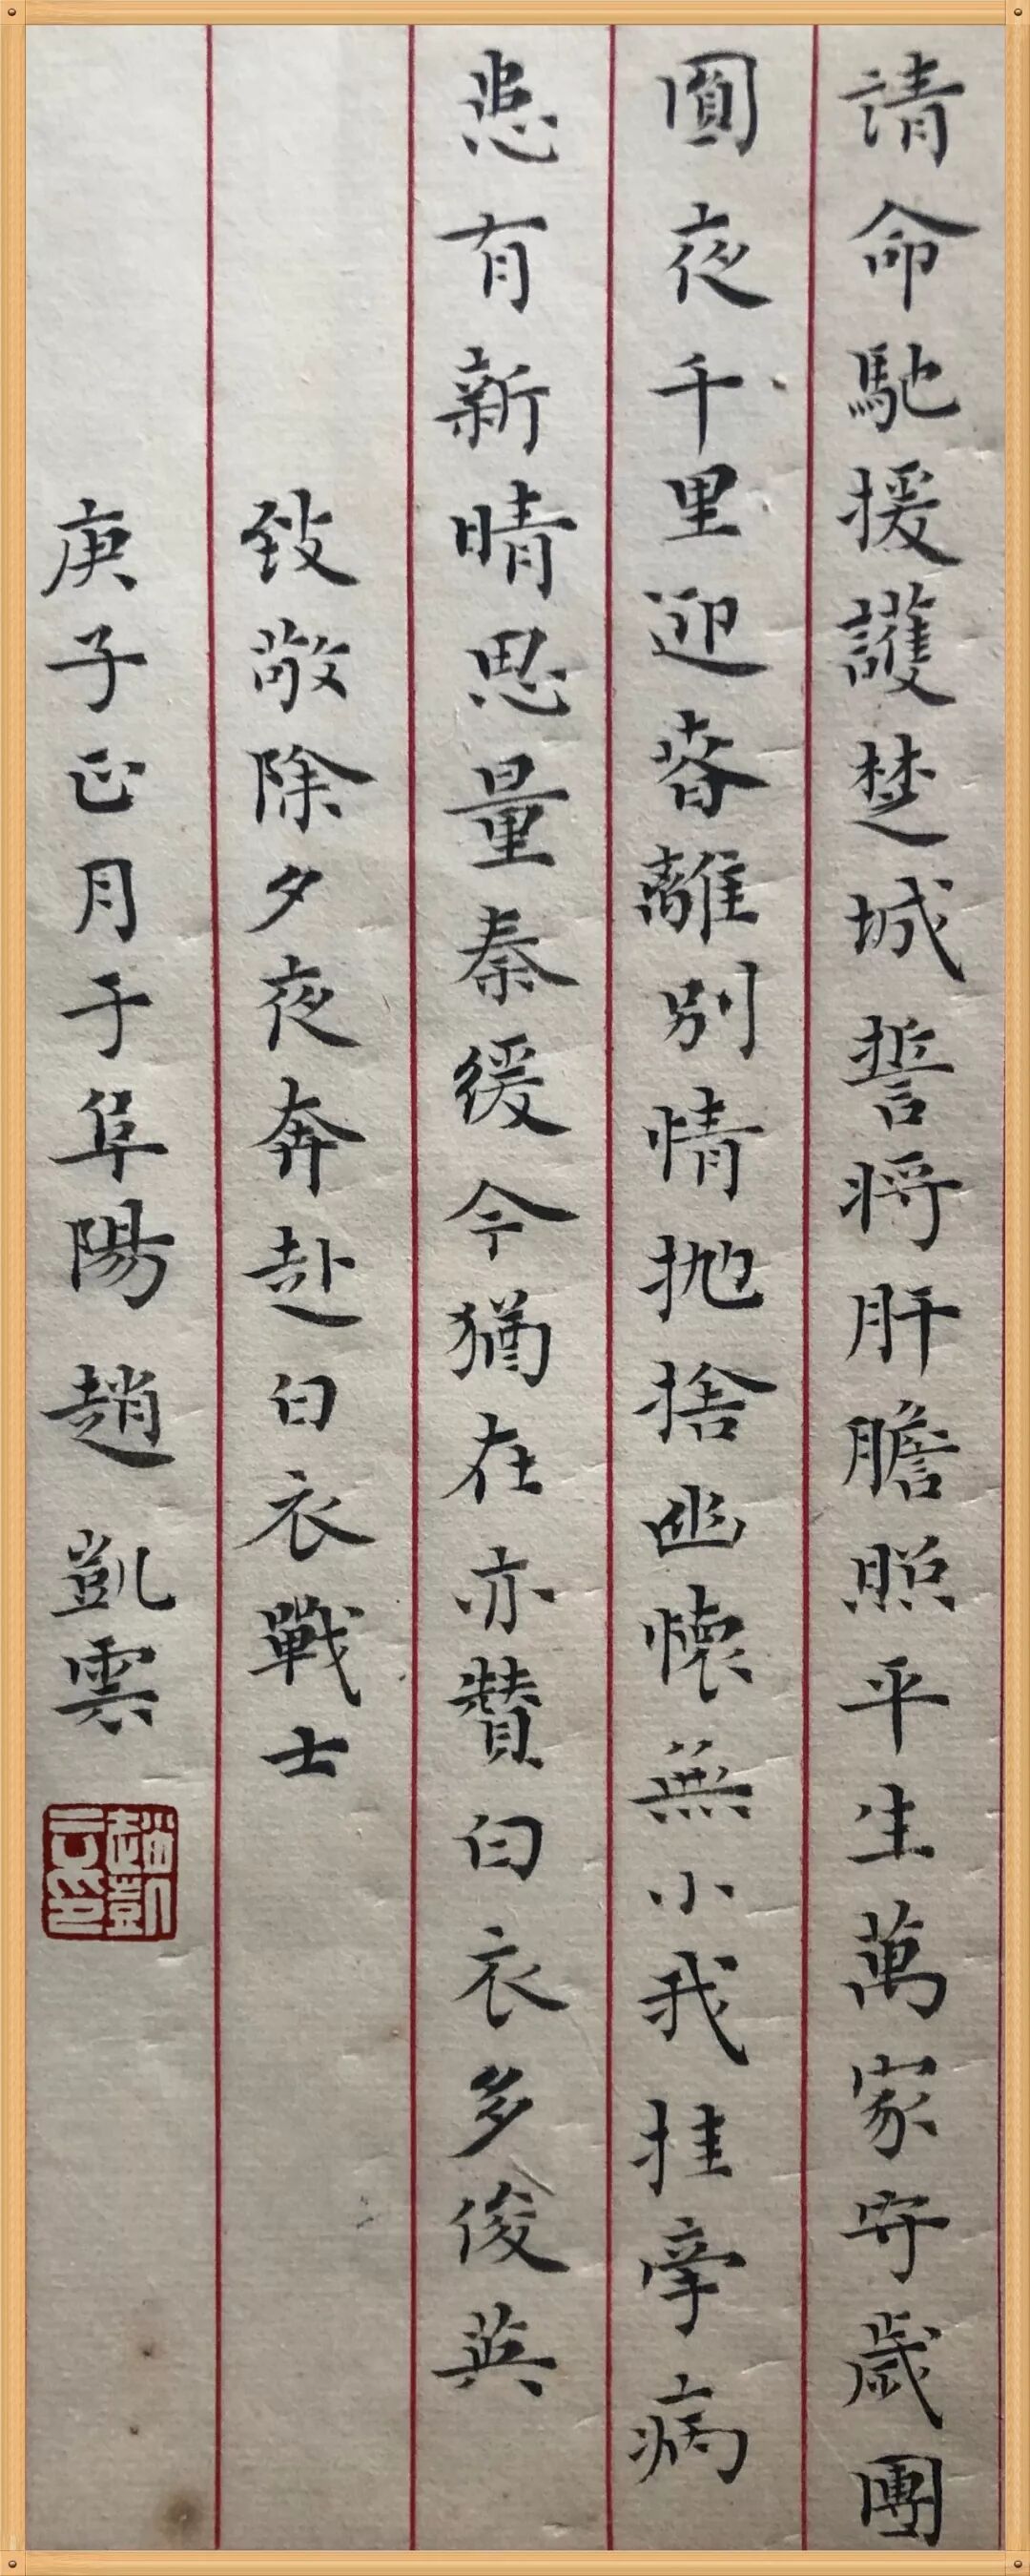 請命馳援護楚城誓將肝膽照平生萬家守歲團
圓夜千里迎春離別情拋捨幽懷無小我挂牽病
患有新晴思量秦緩今猶在亦贊白衣多俊英
致敬除夕夜奔赴白衣戰士
庚子正月于阜陽 趙凱雲
趙凱云印